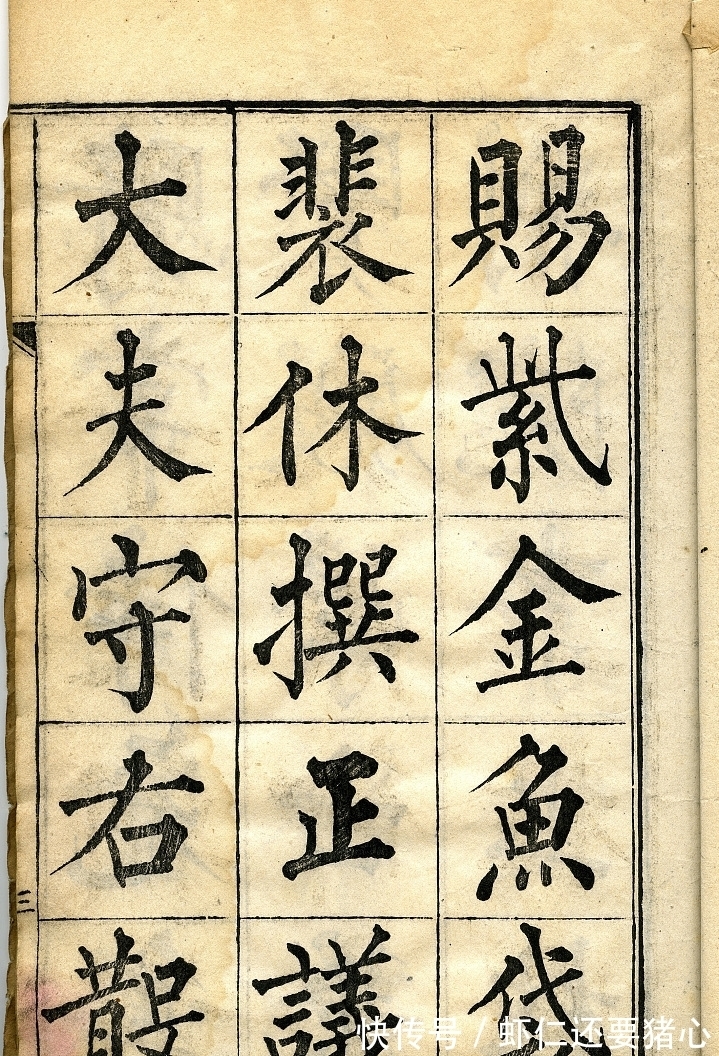 賜紫金魚袋
裴休撰正議
大夫守右散
三
快传号 / 虾仁还要猪心